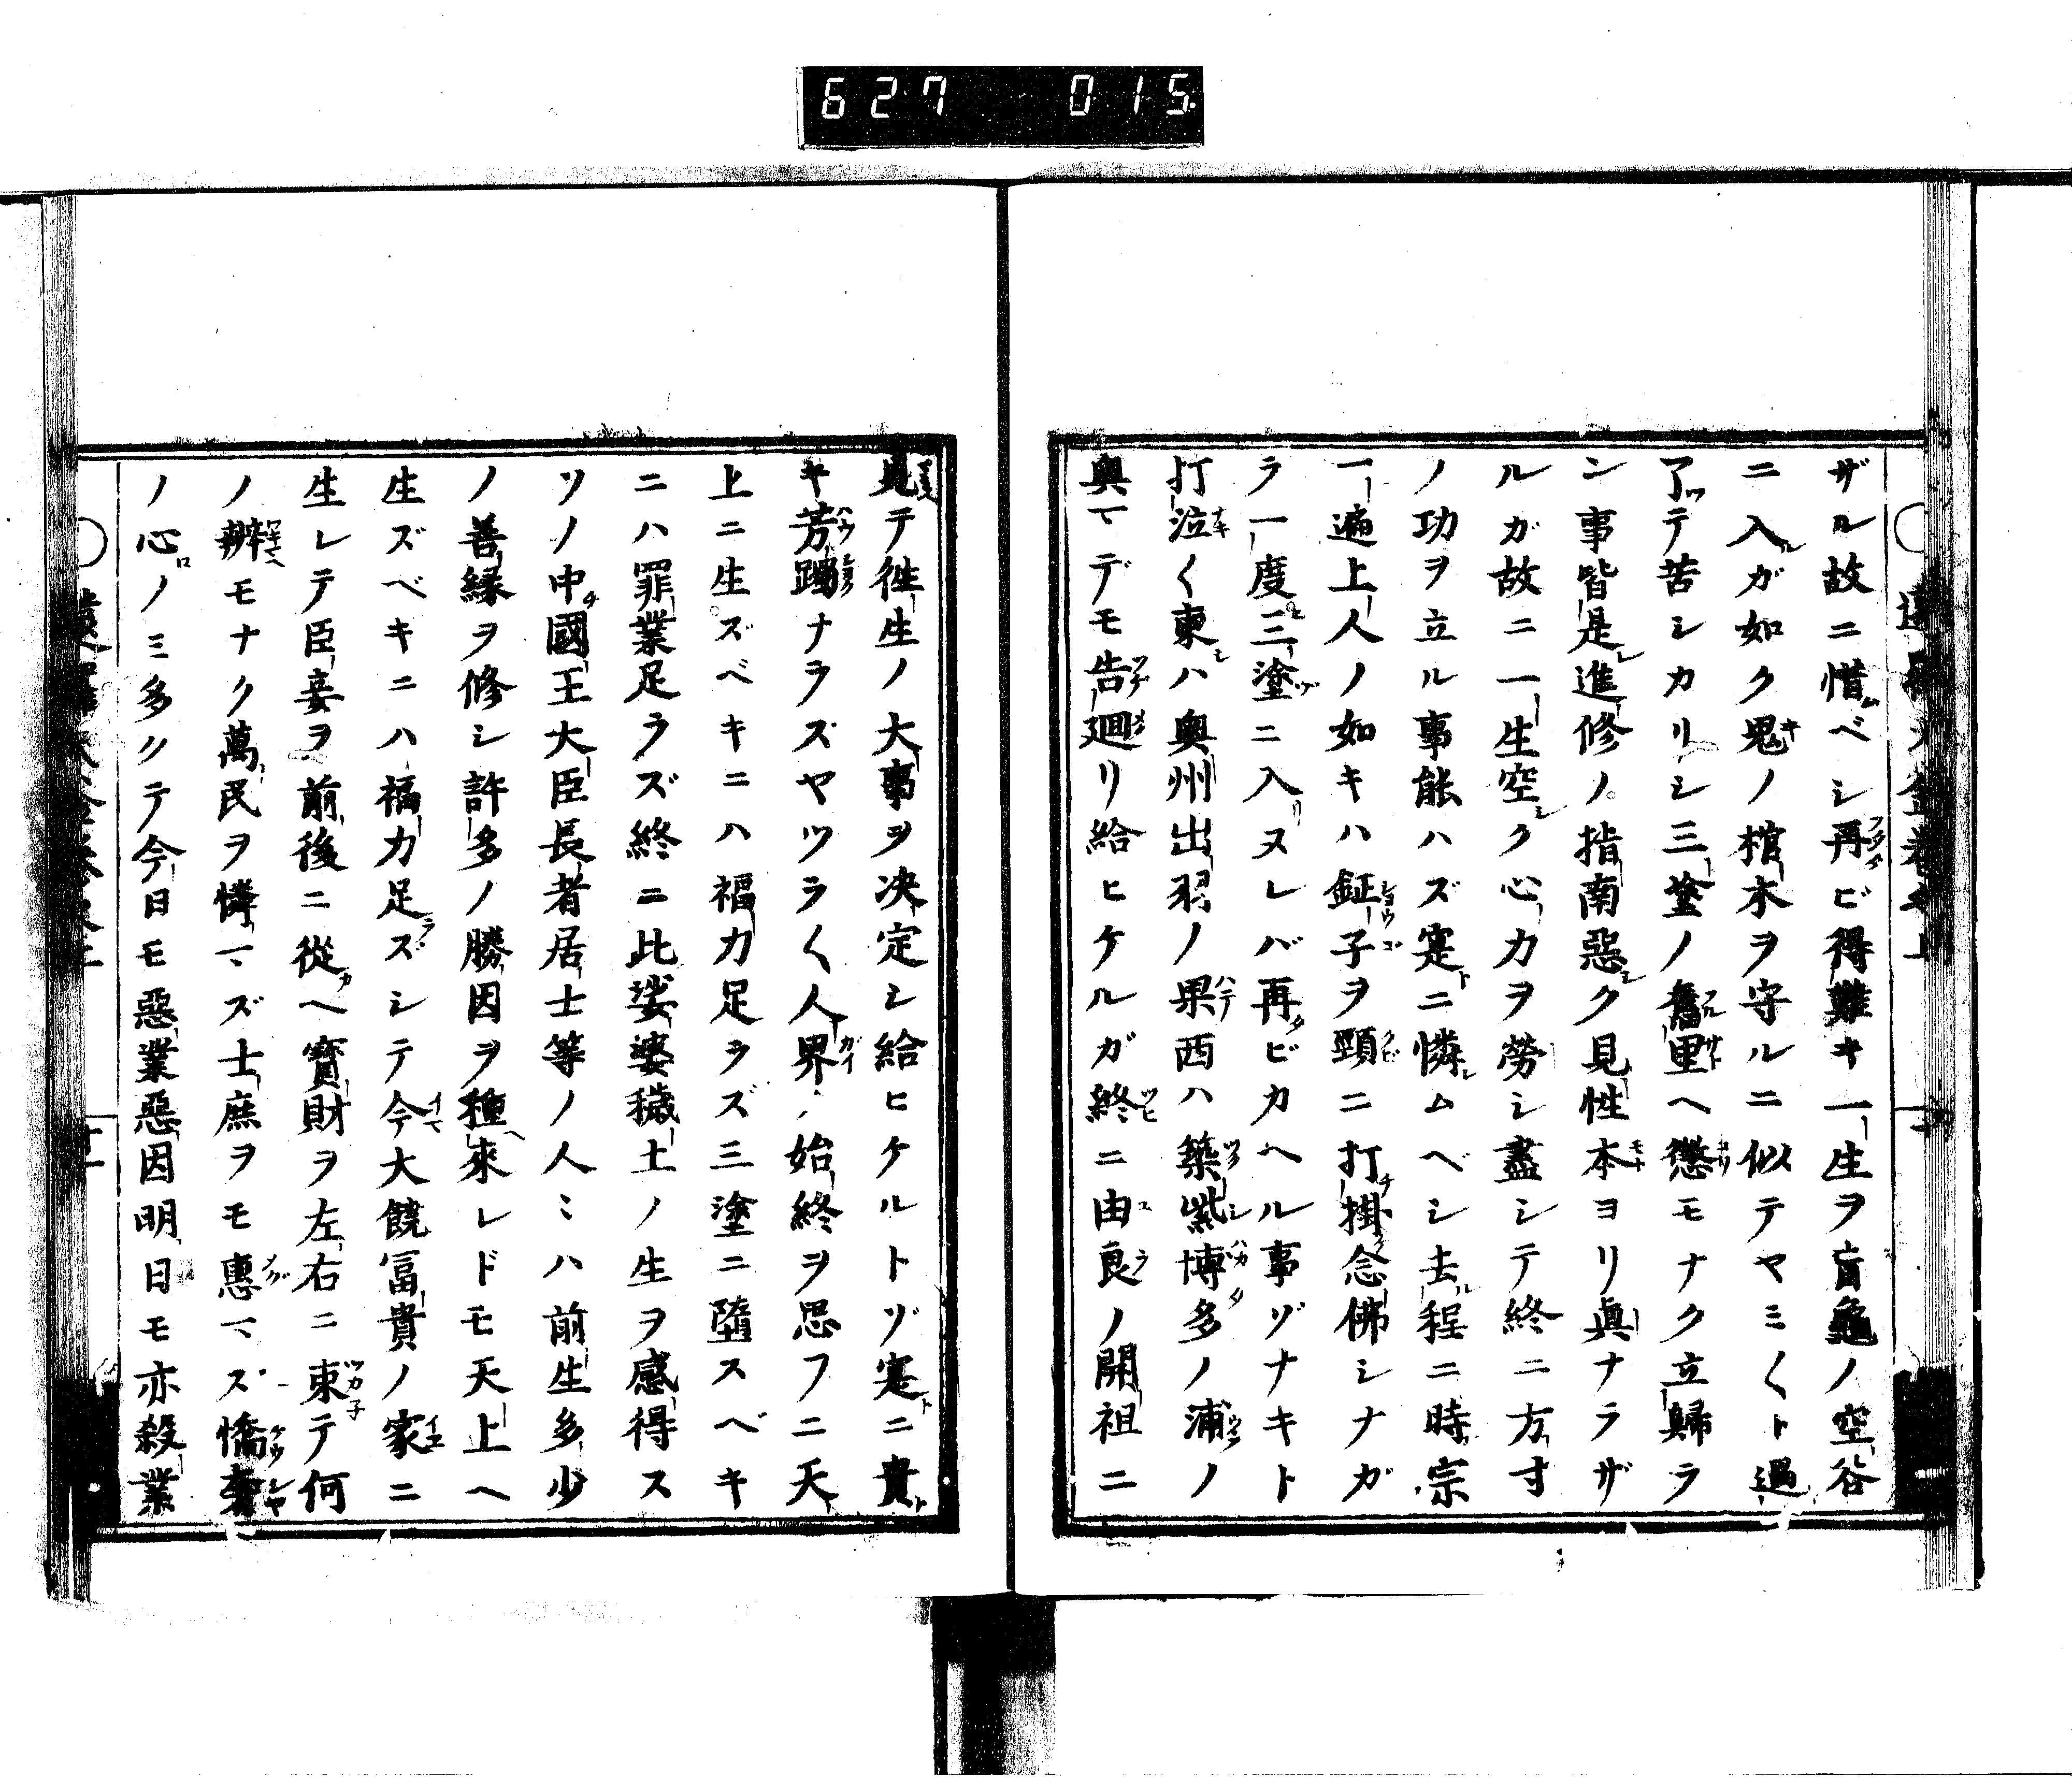 627 015.
ザル故ニ惜ベシ再ビ得難キ一生ヲ盲龜ノ空谷
ニ入ガ如ク鬼ノ棺木ヲ守ルニ似テヤミ〱ト過
了テ苦シカリシ三塗ノ舊里ヘ懲モナク立歸ラ
ン事皆是進修ノ指南惡ク見性本ヨリ眞ナラザ
ルガ故ニ一生空ク心カヲ勞シ盡シテ終ニ方寸
ノ功ヲ立ル事能ハズ寔ニ憐ムベシ去程ニ時宗
一遍上人ノ如キハ鉦子ヲ頸ニ打掛念佛シナガ
ラ一度三塗ニ入ヌレバ再ビカヘル事ゾナキト
打泣〱東ハ奥州出羽ノ果西ハ築紫博多ノ浦ノ
奥マデモ告廻リ給ヒケルガ終ニ由良ノ開祖ニ
見テ徃生ノ大事ヲ决定シ給ヒケルトゾ寔ニ貴
キ芳躅ナラズヤツラ〱人界ノ始終ヲ思フニ天
上ニ生ズベキニハ福力足ラズ三塗ニ墮スベキ
ニハ罪業足ラズ終ニ此娑婆穢土ノ生ヲ感得ス
ソノ中國王大臣長者居士等ノ人ミハ前生多少
ノ善縁ヲ修シ許多ノ勝因ヲ種來レドモ天上ヘ
生ズベキニハ福力足ズシテ今大饒冨貴ノ家ニ
生レテ臣妾ヲ前後ニ從ヘ寳財ヲ左右ニ束テ何
ノ辨モナク萬民ヲ憐マズ士庶ヲモ惠マズ憍奢
ノ心ノミ多クテ今日モ惡業惡因明日モ亦殺業